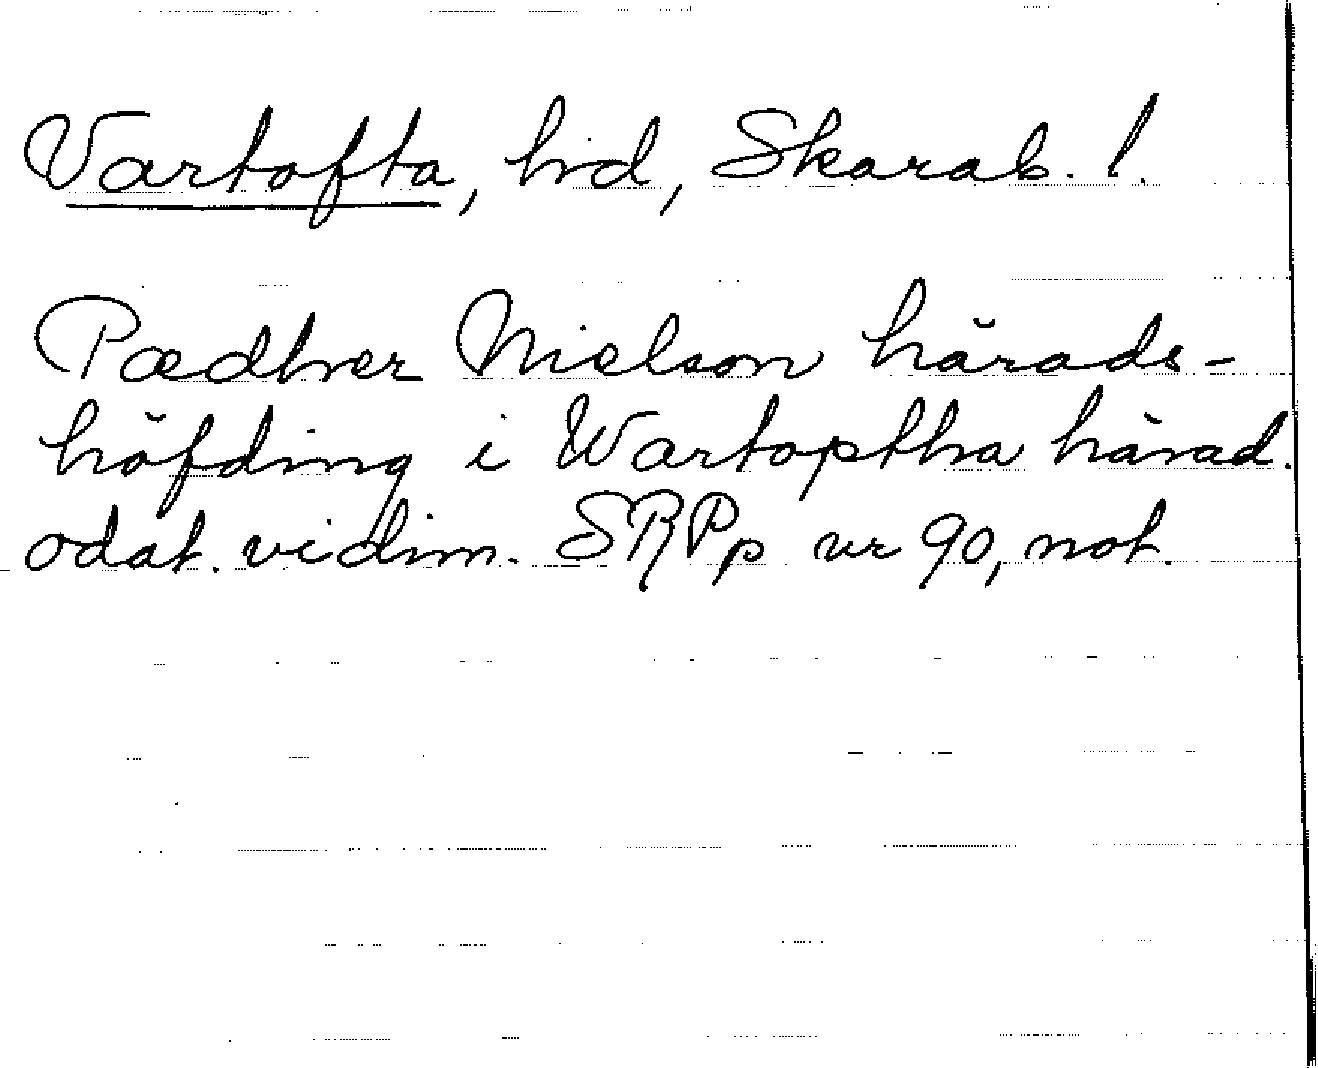 Vartofta, hd, Skarab. l.
Pædher Nielson härads-
höfding i Wartoptha härad.
odat. vidim. SRPp nr 90, not.